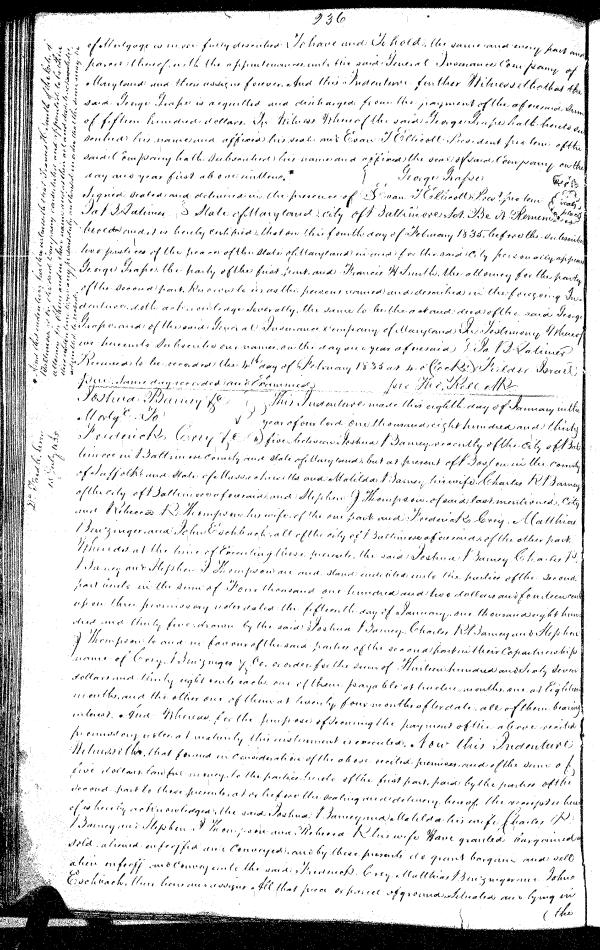 236
of Mortgage is more fully described To have and To hold, the same and every part and
parcel thereof, with the appurtenances, unto the said General Insurance Company of
Maryland and their assigns forever. And this Indenture further Witnesseth that the
said George Grape is acquitted and discharged from the payment of the aforesaid sum
of fifteen hundred dollars. In Witness Whereof the said George Grape hath hereto sub
scribed his name and affixed his seal and Evan T Ellicott President pro tem of the
said Company hath subscribed his name and affixed the seal of said Company on the
day and year first above written. *
George Grape
Signed sealed and delivered in the presence of Evan T Ellicott Prest pro tem
State of Maryland, city of Baltimore Sct. Be it Remem
bered and it is hereby certified, that on this fourth day of February 1835, before the subscribers
two justices of the peace of the state of Maryland in and for the said city personally appear
George Grape the party of the first part and Francis H Smith, the attorney for the party
of the second part, known to us as the persons named and described in the foregoing In
denture, doth acknowledge severally, the same to be the act and deed of the said George
Grape and of the said General Insurance Company of Maryland. In Testimony Whereof
we hereunto subscribe our names, on the day and year aforesaid
Received to be recorded the 4th day of February 1835 at
same day recorded and Examined
Joshua Barney &c
Mortge To
Frederick Crey &c
This Indenture made this eighth day of January in the
year of our Lord one thousand eight hundred and thirty
five, between Joshua Barney, recently of the city of Bal
timore in Baltimore County and state of Maryland, but at present of Boston in the county
of Suffolk and state of Massachusetts and Matilda Barney, his wife, Charles R Barney
of the city of Baltimore aforesaid, and Stephen J Thompson, of said last mentioned City
and Rebecca R Thompson his wife of the one part and Frederick Crey, Matthias
Benzinger, and John Eschbach, all of the city of Baltimore aforesaid of the other part.
Whereas at the time of Executing these presents, the said Joshua Barney Charles R
Barney and Stephen J Thompson are and stand indebted unto the parties of the second
part in the sum of Four thousand one hundred and two dollars and fourteen cents
upon three promissory notes dated the fifteenth day of January, one thousand eight hun
dred and thirty five drawn by the said Joshua Barney, Charles R Barney and Stephen
J Thompson to and in favour of the said parties of the second part in their Copartnership
name of Crey, Benzinger & Co. or order for the sum of Thirteen hundred and sixty seven
dollars and thirty eight cents each, one of them payable at twelve months, one at Eighteen
months, and the other one of them at twenty four months after date, all of them bearing
interest. And Whereas, for the purpose of securing the payment of the above recited
promissory notes at maturity this instrument is executed. Now this Indenture
Witnesseth, that for and in consideration of the above recited premises, and of the sum of
five dollars lawful money, to the parties hereto of the first part, paid by the parties of the
second part to these presents, at or before the sealing and delivery hereof, the receipt where
of is hereby acknowledged, the said Joshua Barney and Matilda his wife, Charles R
Barney and Stephen J Thompson and Rebecca R his wife Have granted bargained and
sold, aliened enfeoffed and Conveyed, and by these presents do grant bargain and sell
alien enfeoff and Convey unto the said Frederick Crey Matthias Benzinger and John
Eschbach, their heirs and assigns All that piece or parcel of ground, situate and lying in
(the